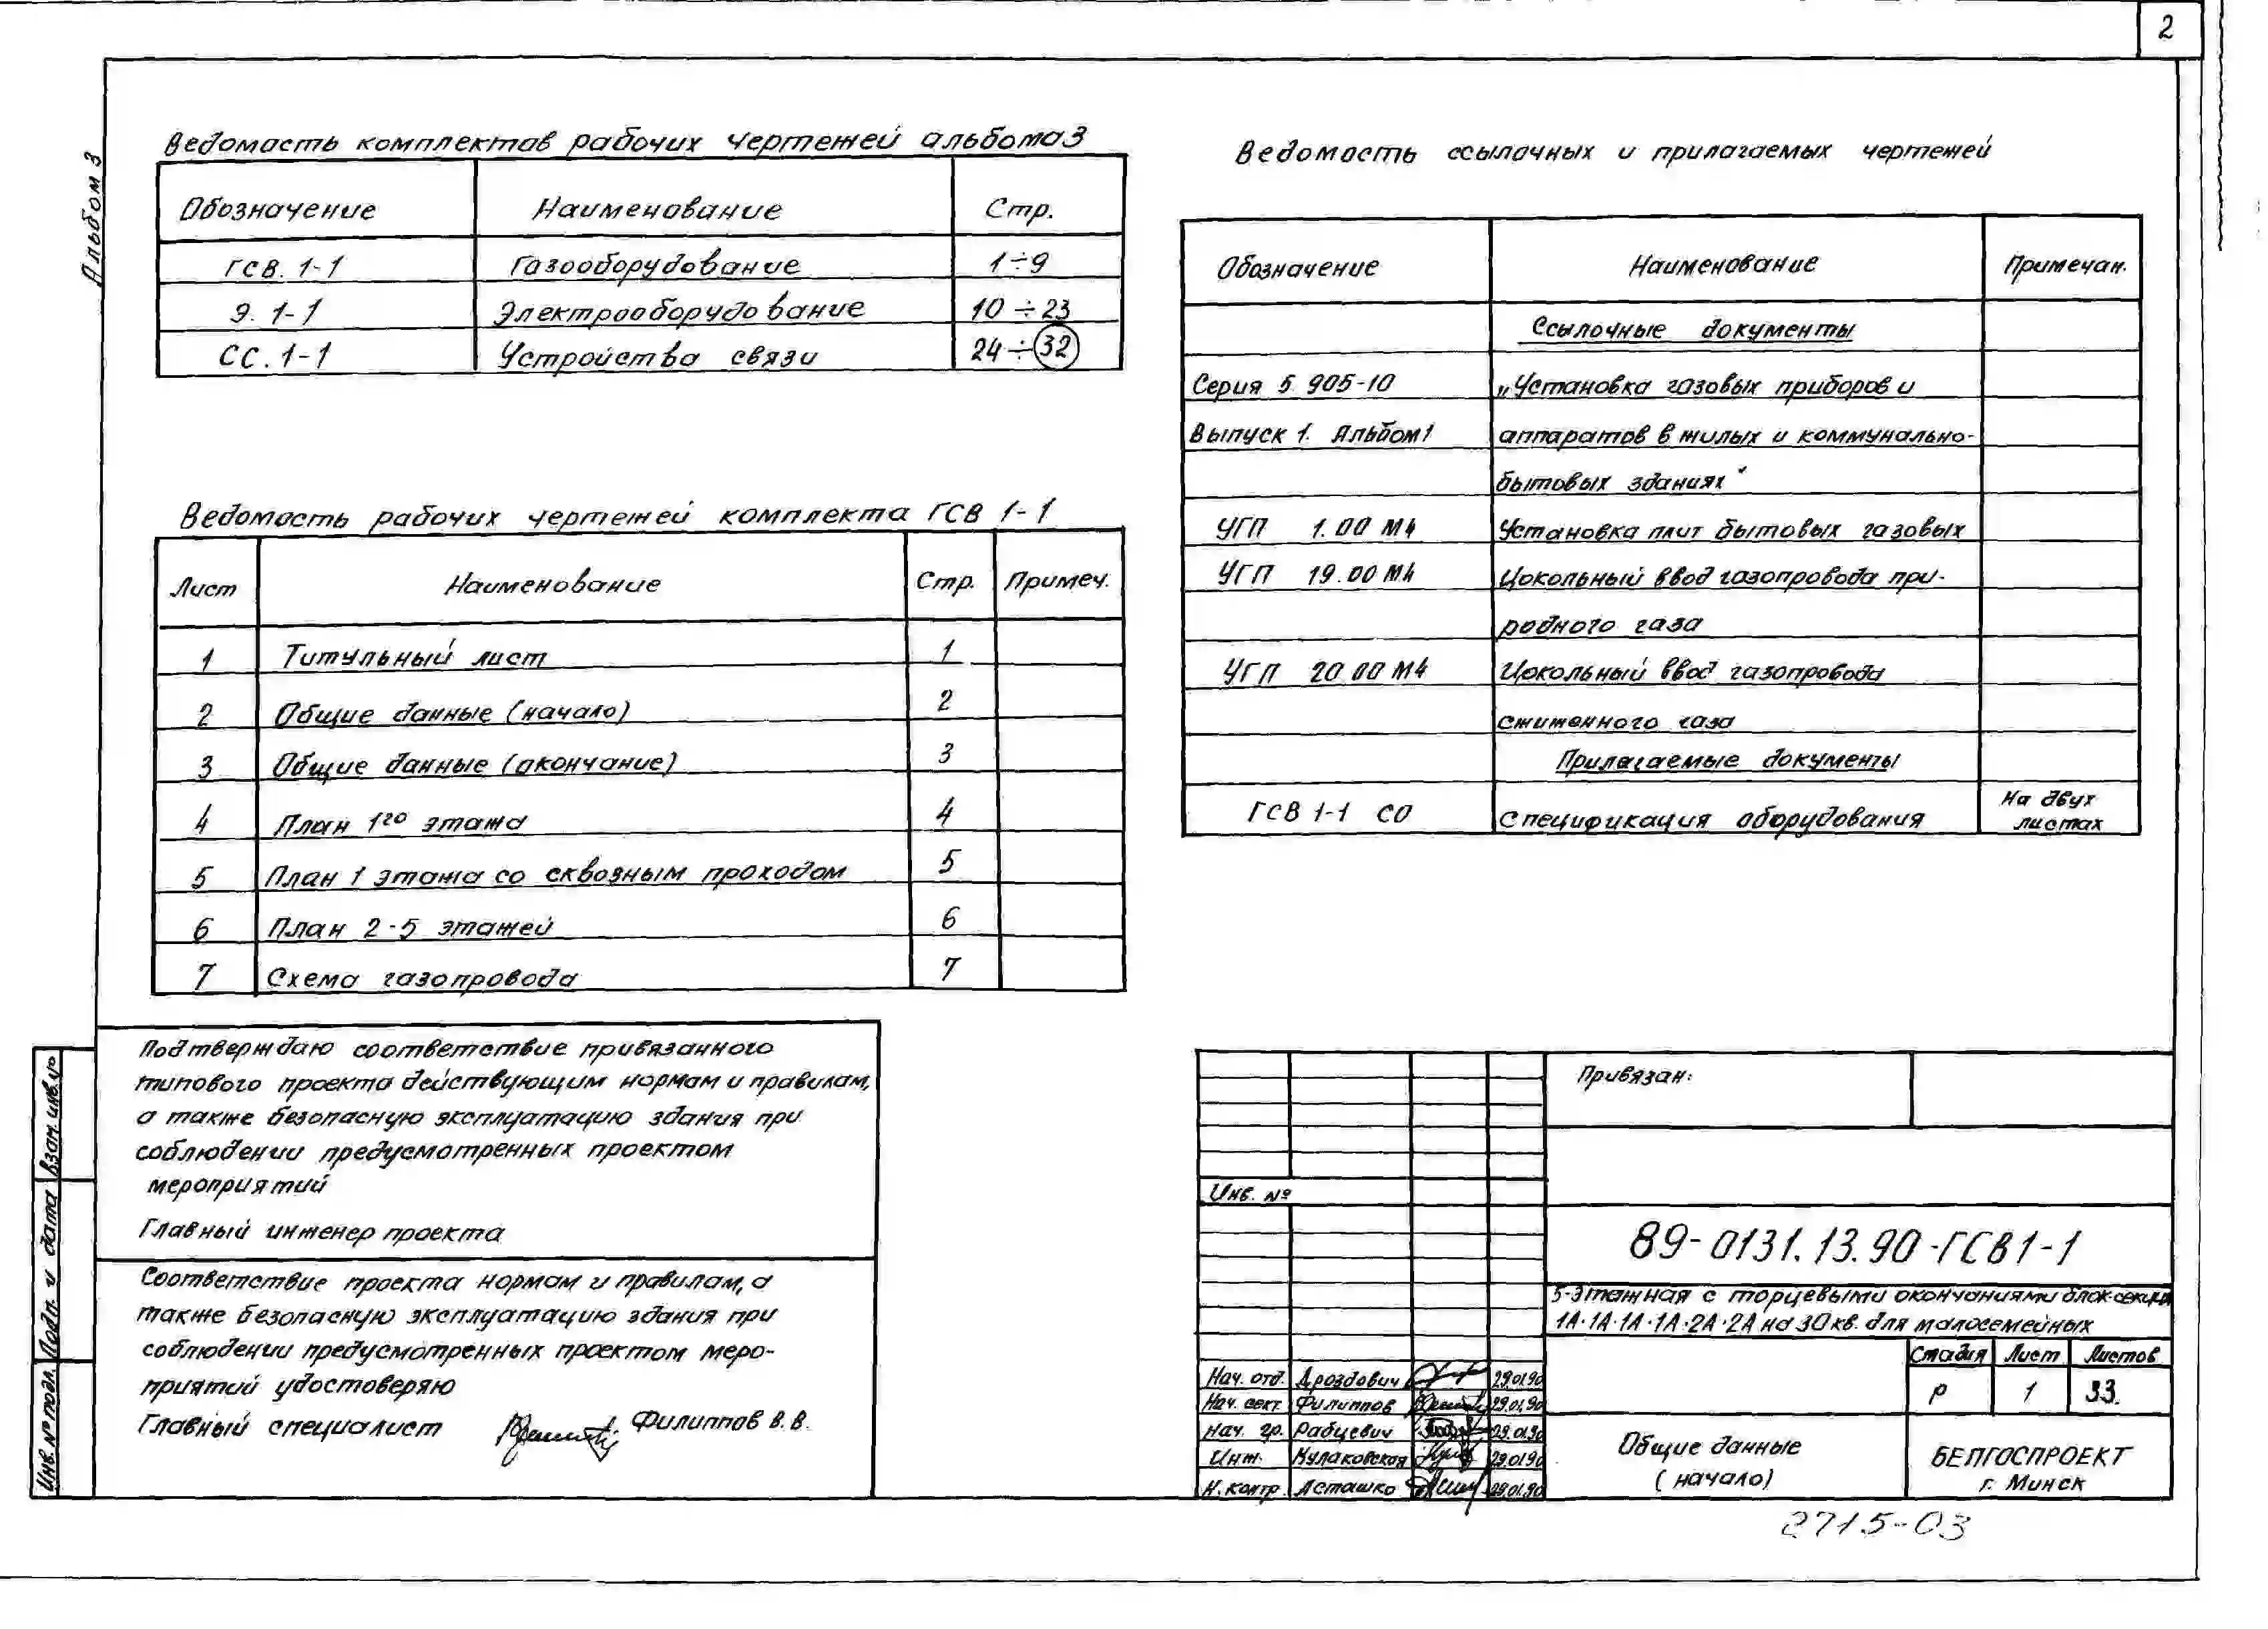 2
Альбом 3
Ведомость комплектов рабочих чертежей альбома 3
Обозначение Наименование Стр.
ГСВ. 1-1 Газооборудование 1÷9
Э. 1-1 Электрооборудование 10÷23
СС. 1-1 Устройства связи 24÷32
Ведомость рабочих чертежей комплекта ГСВ 1-1
Лист Наименование Стр. Примеч.
1 Титульный лист 1
2 Общие данные (начало) 2
3 Общие данные (окончание) 3
4 План 1го этажа 4
5 План 1 этажа со сквозным проходом 5
6 План 2-5 этажей 6
7 Схема газопровода 7
Ведомость ссылочных и прилагаемых чертежей
Обозначение Наименование Примечан.
Ссылочные документы
Серия 5.905-10 „Установка газовых приборов и
Выпуск 1. Альбом 1 аппаратов в жилых и коммунально-
бытовых зданиях"
УГП 1.00 М4 Установка плит бытовых газовых
УГП 19.00 М4 Цокольный ввод газопровода при-
родного газа
УГП 20.00 М4 Цокольный ввод газопровода
сжиженного газа
Прилагаемые документы
ГСВ 1-1 СО Спецификация оборудования На двух
листах
Подтверждаю соответствие привязанного
типового проекта действующим нормам и правилам,
а также безопасную эксплуатацию здания при
соблюдении предусмотренных проектом
мероприятий
Главный инженер проекта
Соответствие проекта нормам и правилам, а
также безопасную эксплуатацию здания при
соблюдении предусмотренных проектом меро-
приятий удостоверяю
Главный специалист Филиппов В.В.
Взам. инв. №
Подп. и дата
Инв. № подл.
Привязан:
Инв. №
89-0131.13.90-ГСВ1-1
5-этажная с торцевыми окончаниями блок-секция
1А·1А·1А·1А·2А·2А на 30 кв. для малосемейных
Стадия Лист Листов
Р 1 33.
Нач. отд. Дроздович 29.01.90
Нач. сект. Филиппов 29.01.90
Нач. гр. Рабцевич 29.01.90
Инж. Кулаковская 29.01.90
Н. контр. Асташко 29.01.90
Общие данные
(начало)
БЕЛГОСПРОЕКТ
г. Минск
2715-03